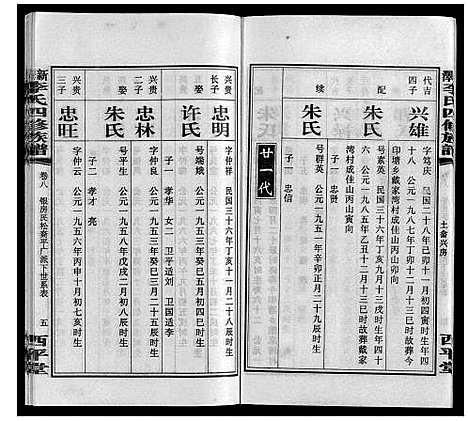 李氏四修族譜
士畬兴房
西平堂
代吉
四子
兴雄
字笃庆 民国二十八年己卯十一月初四寅时生年四
十八 公元一九八七年丁卯十二月十三日时故葬今
印塘乡戴家湾村成佳山丙山卯向
配
朱氏
号素英 民国三十六年丁亥十一月十三戌时生年四十
六 公元一九八五年乙丑十二月十三日时故葬戴家
湾村成佳山丙山寅向
子一 忠贤
续
朱氏
号群英 公元一九五一年辛卯正月二十九辰时生
子一 忠信
廿一代
兴贵
长子
忠明
字仲祥 民国三十六年丁亥十一月二十八辰时生
娶
许氏
号端娥 公元一九五三年癸巳五月初六辰时生
子一 孝华 女二 卫平适刘 卫国适李
兴贵
二子
忠林
字仲良 公元一九五三年癸巳三月二十五辰时生
娶
朱氏
号平生 公元一九五八年戊戌二月初八辰时生
子二 孝才 亮
兴贵
三子
忠旺
字仲云 公元一九五六年丙申十月初七亥时生
李氏四修族譜
卷八 银房民松斋平广派下世系表
五
西平堂